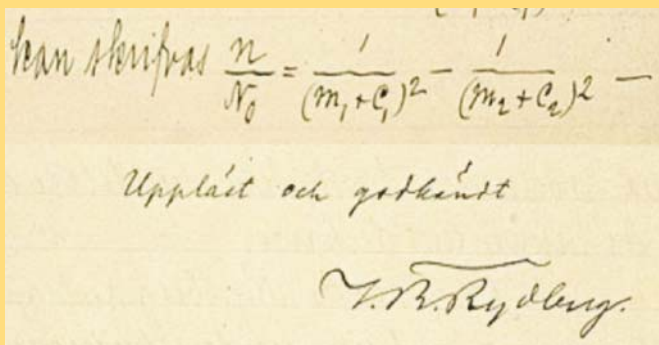 kan skrifvas n/N₀ = 1/(m₁+c₁)² − 1/(m₂+c₂)² —
Uppläst och godkändt
J. R. Rydberg.